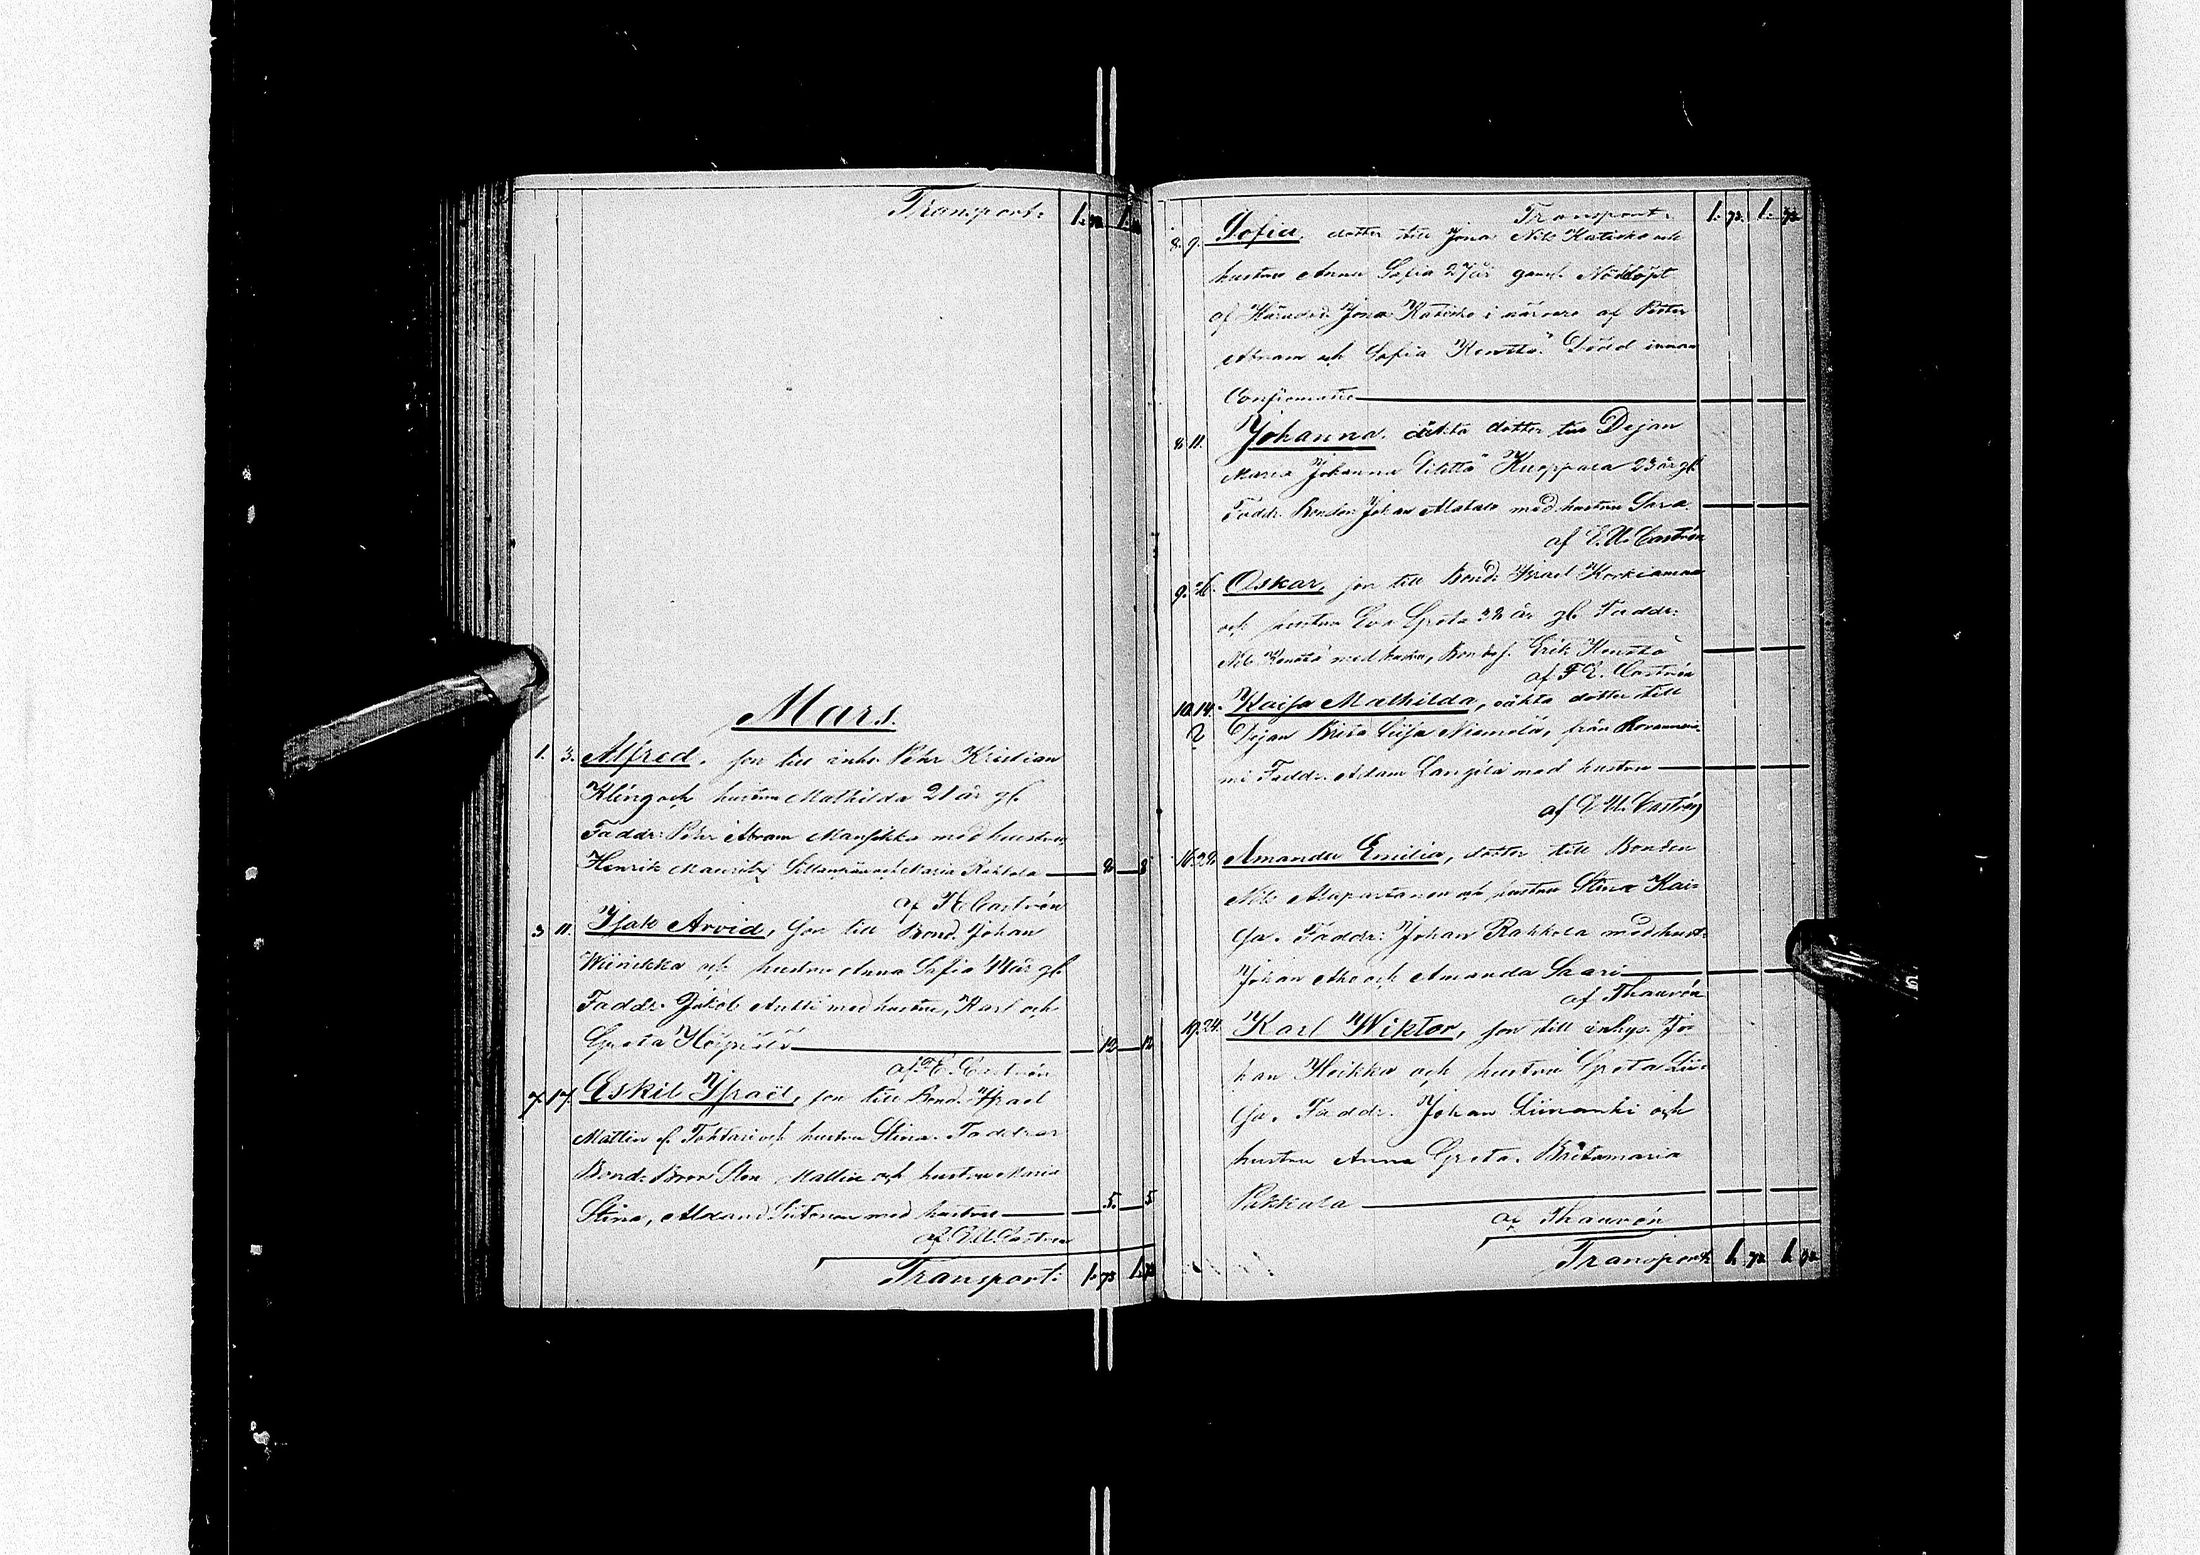 Transport. 1. 72 1. 72
Mars.
1. 3. Alfred, son till inh. Pehr Kristian
Kling och hustru Mathilda 21 år gl.
Faddr: Pehr Abram Mansikka med hustru,
Henrik Mauritz Sillanpää och Maria Rakkola 8 8
af F.E. Castrén
3 11. Isak Arvid, son till Bond. Johan
Wiinikka och hustru Anna Sofia år gl.
Faddr. Jakob Antti med hustru, Karl och
Greta 12 12
af F.E. Castrén
7. 17. Eskil Israel, son till Bond. Israel
Mattin och hustru Stina. Faddrar
Bond: Sten Mattin och hustru Maria
Stina, med hustru 5. 5
af E.U. Castrén
Transport: 1. 72 1. 72
Transport. 1. 72. 1. 72
8. 9. Sofia, dotter till Jona Nils Katisko och
hustru Anna Sofia 27 år gaml. Nöddöpt
af Häradsd. Jona Katisko i närvaro af Petter
Abram och Sofia Kenttä. Död innan
Confirmatio
8 11. Johanna, oäkta dotter till Pejan
Maria Johanna Kuoppala 23 år gl.
Faddr. Bonden Johan Alatalo med hustru Sara.
af E.U. Castrén
9. 16. Oskar, son till Bond. Israel Korkiamaa
och hustru Eva Greta år gl. Faddr:
Nils Kenttä med hustru, Bondes. Erik Kenttä
af F.E. Castrén
10. 14. Kaisa Mathilda, oäkta dotter till
Pejan Brita Liisa Niemelä, från Rovanie-
mi Faddr. Adam Lampela med hustru
af E.U. Castrén
16. 28. Amanda Emilia, dotter till Bonden
Nils Alapartanen och hustru Stina Kai-
sa. Faddr: Johan Rakkola med hust.
Johan Aho och Amanda Saari
af Thaurén
19. 24. Karl Wiktor, son till inhys. Jo-
han Heikka och hustru Greta Lii-
sa. Faddr. Johan Liinanki och
hustru Anna Greta. Britamaria
Pakkala
af Thaurén
Transport 1. 72 1. 72